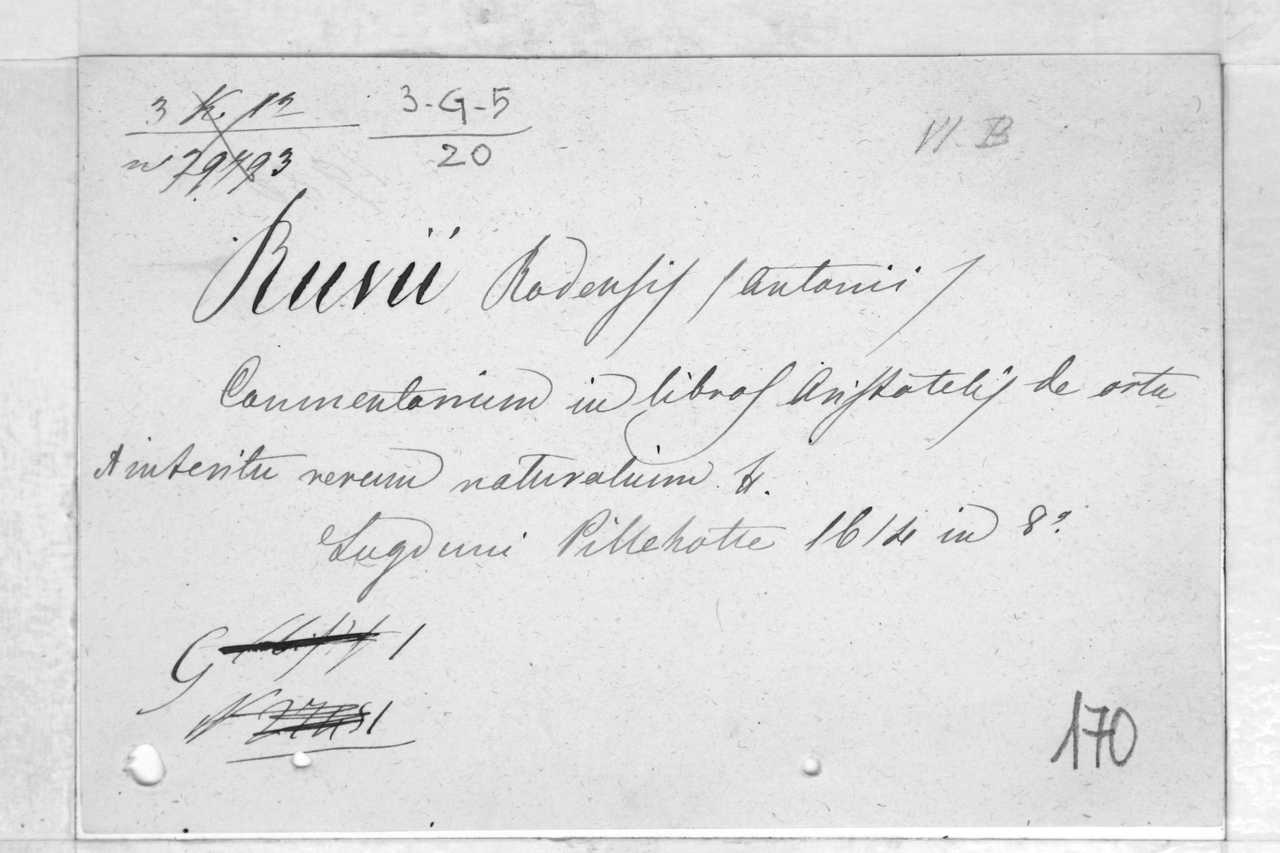 3 K. 12   3-G-5   VI. B
nº 29793   20
Ruvii Rodensis (Antonii)
Commentarium in libros Aristotelis de ortu
& interitu rerum naturalium &.
Lugduni Pillehotte 1614 in 8º.
G 1
N
170